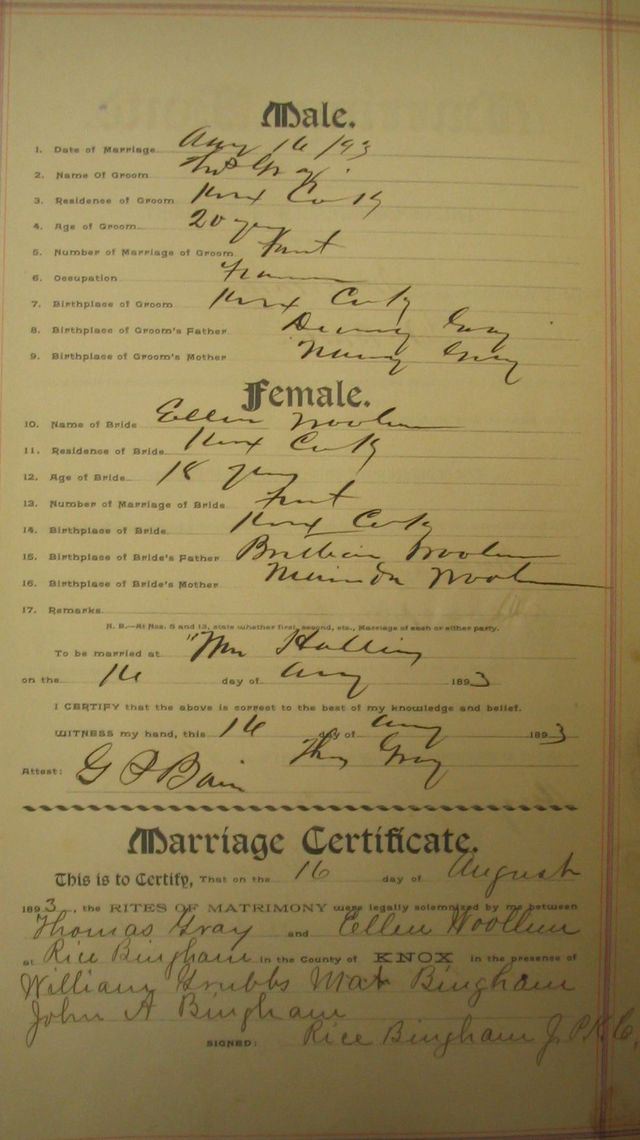 Male.
1. Date of Marriage Aug 16 / 93
2. Name Of Groom Thos Gray
3. Residence of Groom Knox Co Ky
4. Age of Groom 20 years
5. Number of Marriage of Groom First
6. Occupation Farmer
7. Birthplace of Groom Knox Co Ky
8. Birthplace of Groom's Father Gray
9. Birthplace of Groom's Mother Nancy Gray
Female.
10. Name of Bride Ellen Woolum
11. Residence of Bride Knox Co Ky
12. Age of Bride 18 years
13. Number of Marriage of Bride First
14. Birthplace of Bride Knox Co Ky
15. Birthplace of Bride's Father Woolum
16. Birthplace of Bride's Mother Woolum
17. Remarks
N. B.—At Nos. 5 and 13, state whether first, second, etc., Marriage of each or either party.
To be married at Wm
on the 16 day of Aug 1893
I CERTIFY that the above is correct to the best of my knowledge and belief.
WITNESS my hand, this 16 day of Aug 1893
Thos Gray
Attest: G P Bain
Marriage Certificate.
This is to Certify, That on the 16 day of August
1893, the RITES OF MATRIMONY were legally solemnized by me between
Thomas Gray and Ellen Woollum
at Rice Bingham in the County of KNOX in the presence of
William Grubbs Mat Bingham
John A Bingham
SIGNED: Rice Bingham J. P. K. C.